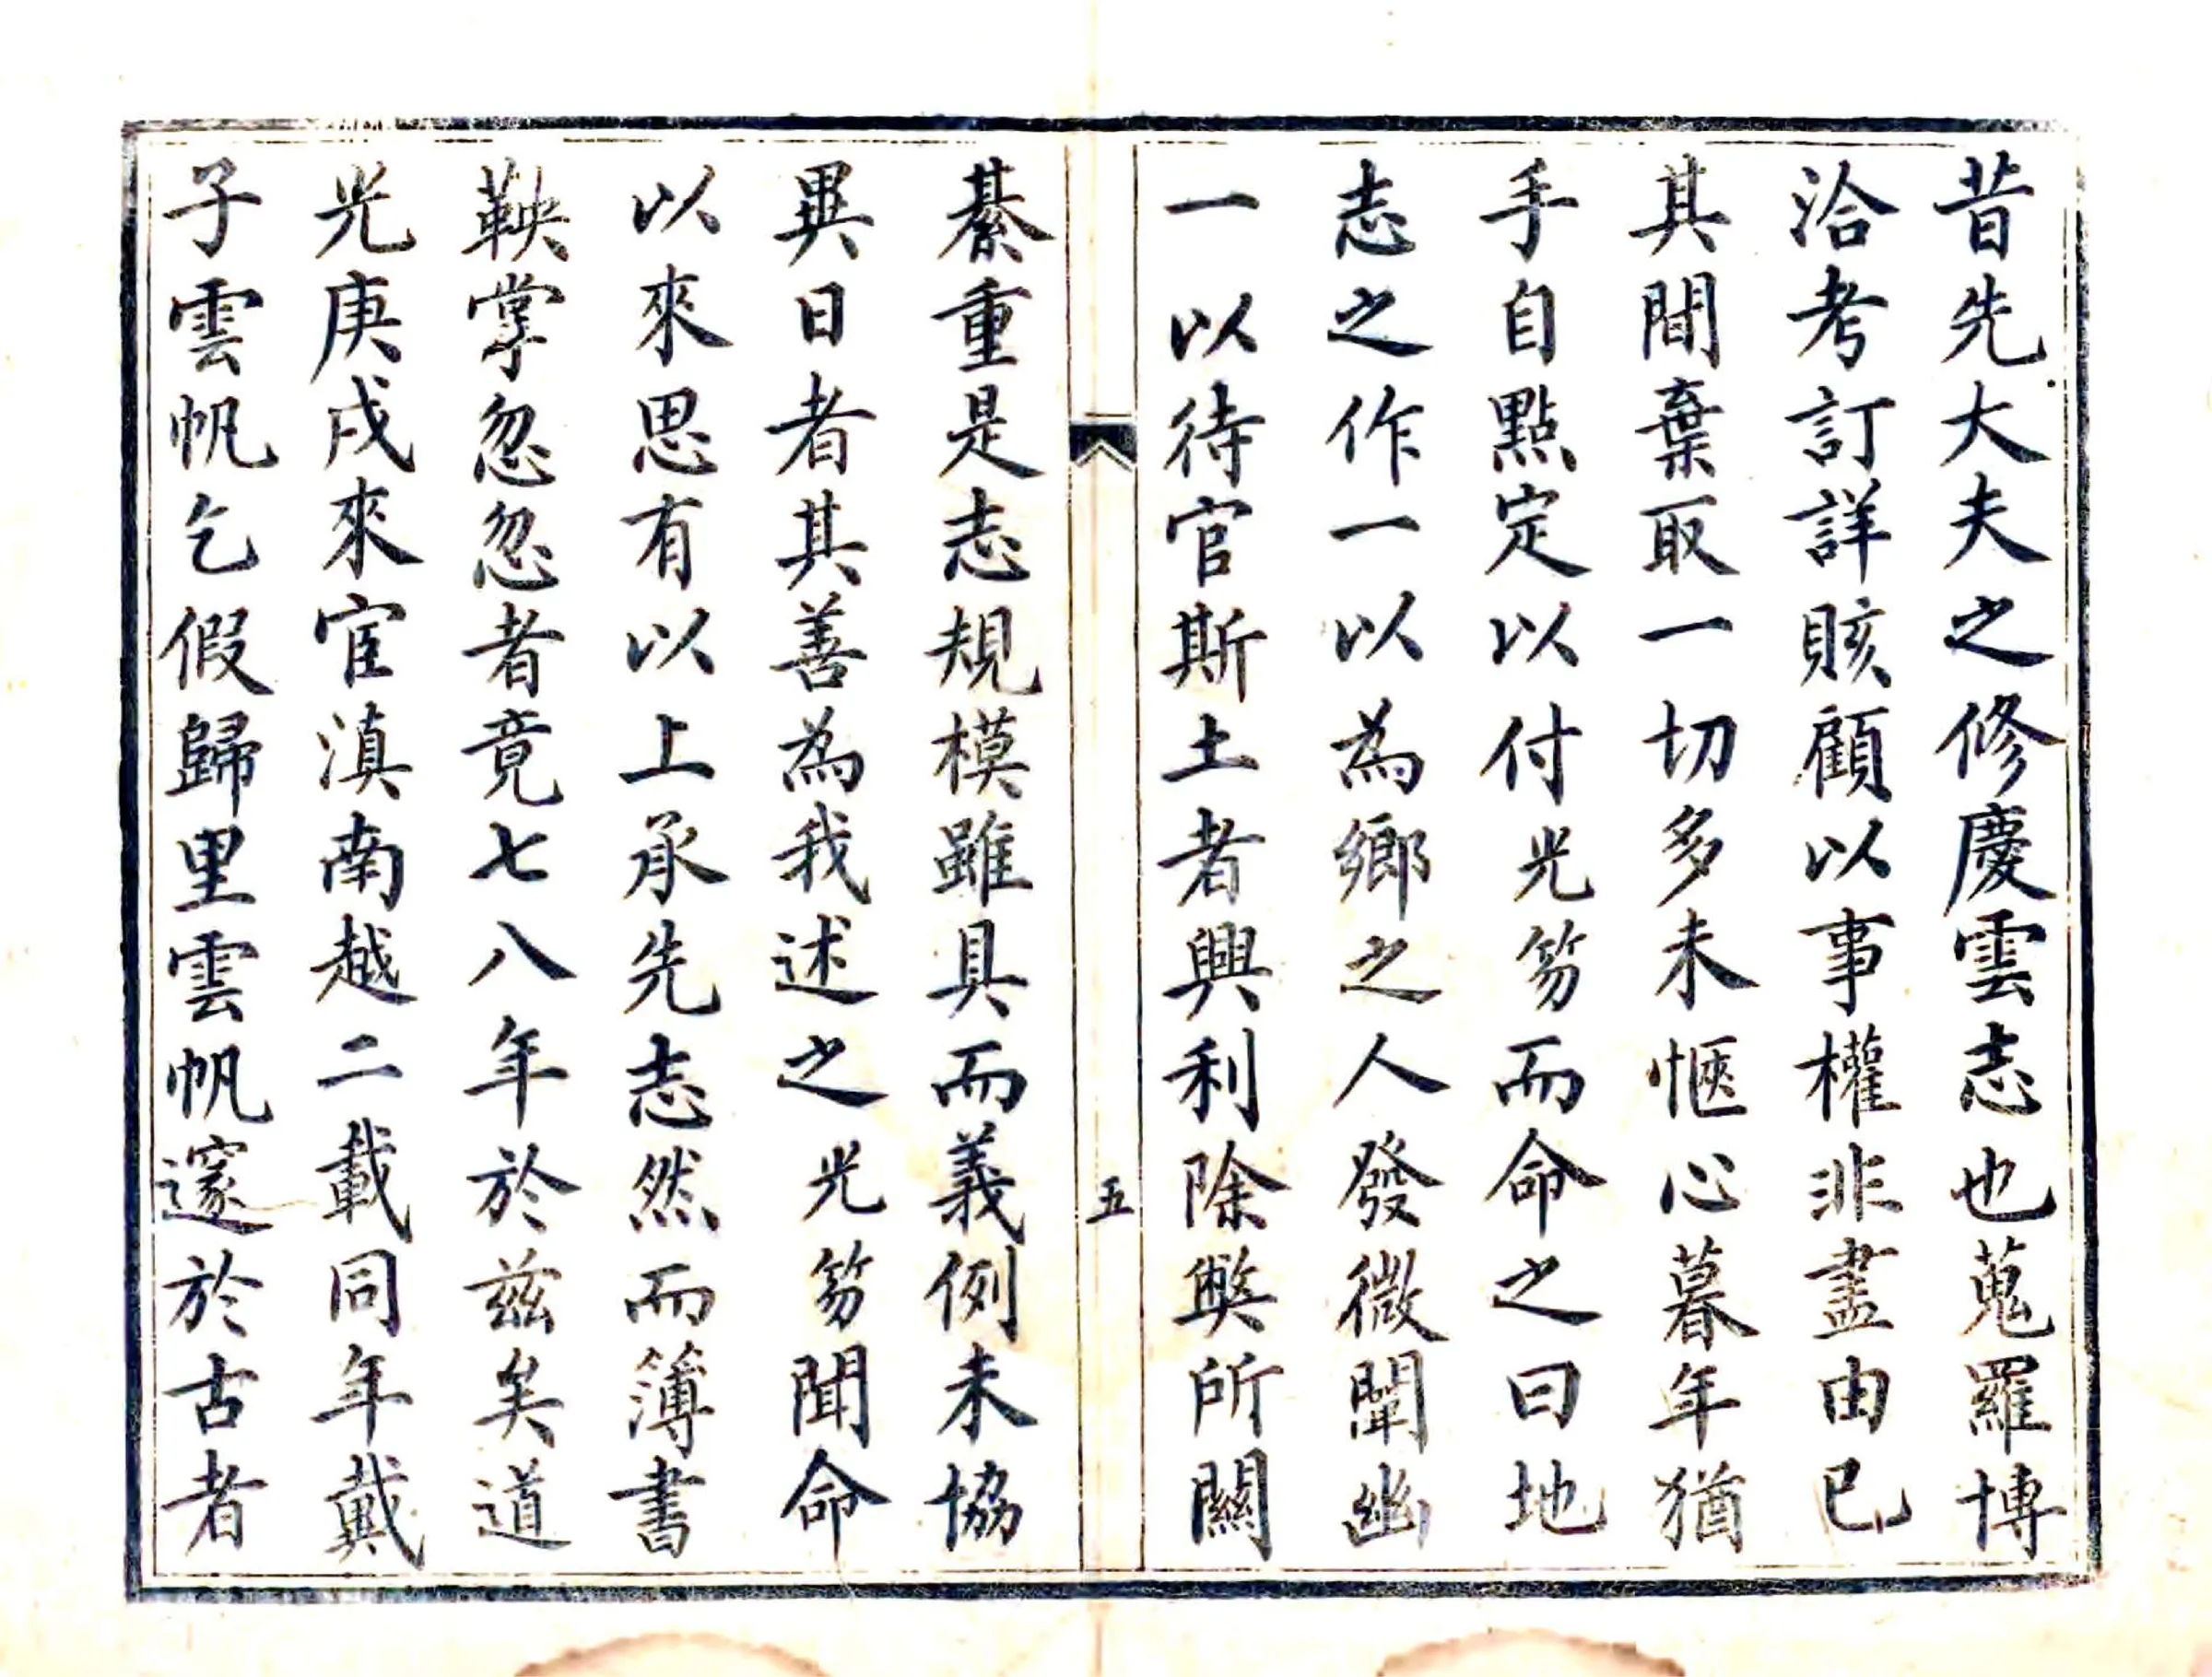 昔先大夫之修慶雲志也蒐羅博
洽考訂詳賅顧以事權非盡由已
其間棄取一切多未愜心暮年猶
手自點定以付光笏而命之曰地
志之作一以為鄉之人發微闡幽
一以待官斯土者興利除弊所關
五
綦重是志規模雖具而義例未協
異日者其善為我述之光笏聞命
以來思有以上承先志然而簿書
鞅掌忽忽者竟七八年於茲矣道
光庚戌來宦滇南越二載同年戴
子雲帆乞假歸里雲帆邃於古者